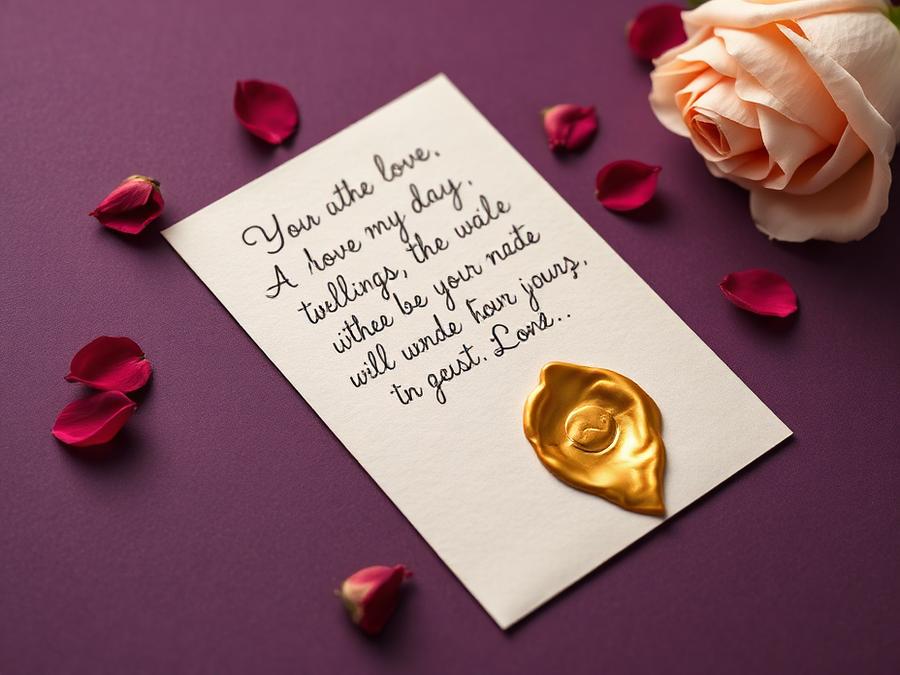 Your athe love,
A love my day,
tvellings, the wale
withee be your naite
will wnde hour jours,
tn geist. Lons..